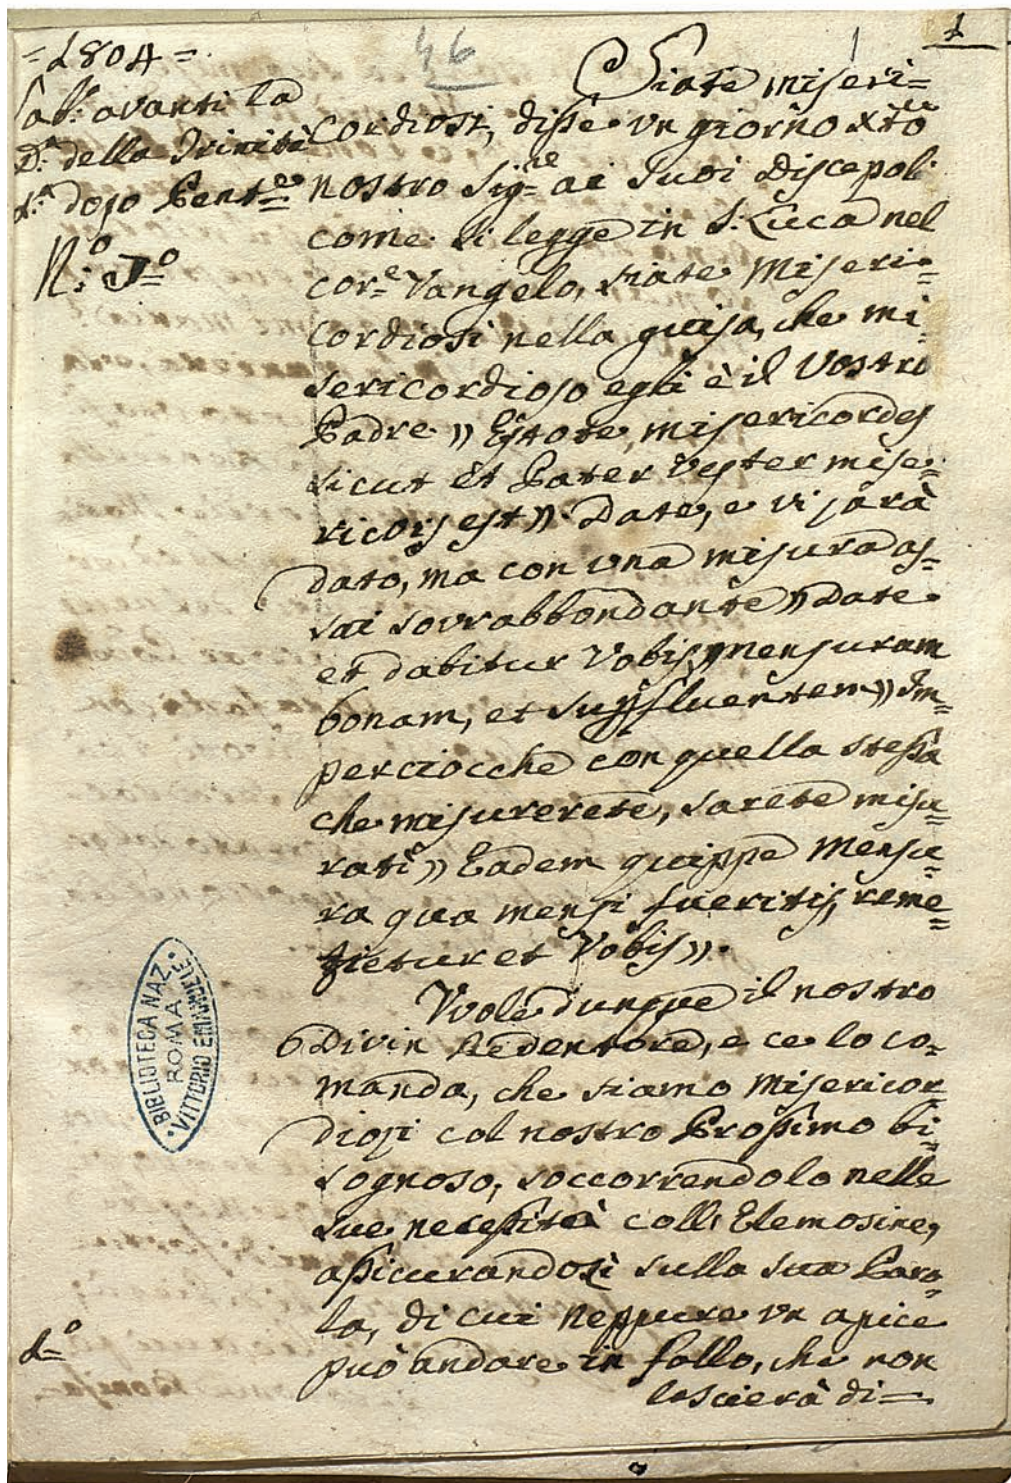 = 1804 =
46
1
Sab: avanti la
D.ª della Trinità
1.ª dopo Pent.e
N.º I.º
Siate miseri=
cordiosi, disse un giorno Xtõ
nostro Sig.re ai suoi Discepoli
come si legge in S: Luca nel
cor.e Vangelo, siate Miseri=
cordiosi nella guisa, che mi=
sericordioso egli è il Vostro
Padre » Estote misericordes
sicut et Pater vester mise=
ricors est ». Date, e vi sarà
dato, ma con una misura as=
sai sovrabbondante » Date
et dabitur Vobis, mensuram
bonam, et suffluentem » Im=
perciocchè con quella stessa
che misurerete, sarete misu=
rati » Eadem quippe Mensu=
ra qua mensi fueritis, reme=
tietur et Vobis ».
Vuole dunque il nostro
Divin Redentore, e ce lo co=
manda, che siamo Misericor=
diosi col nostro Prossimo bi=
sognoso, soccorrendolo nelle
sue necessità coll' Elemosine,
assicurandoci sulla sua Paro=
la, di cui neppure un apice
può andare in fallo, che non
lascierà di =
1.º
BIBLIOTECA NAZ.
ROMA
VITTORIO EMANUELE